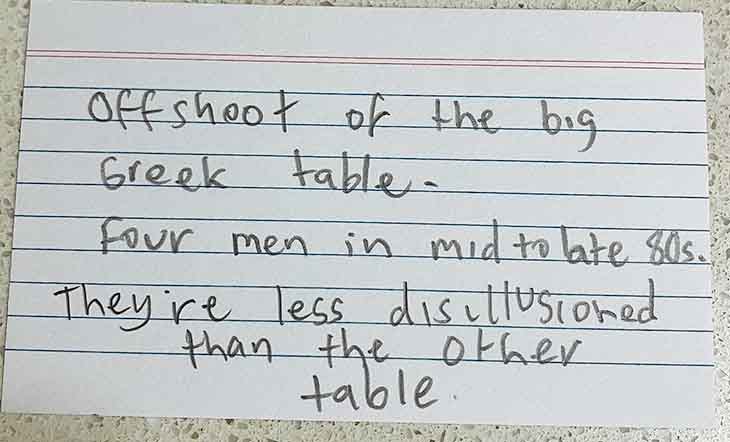 Offshoot of the big
Greek table.
Four men in mid to late 80s.
They're less disillusioned
than the other
table.